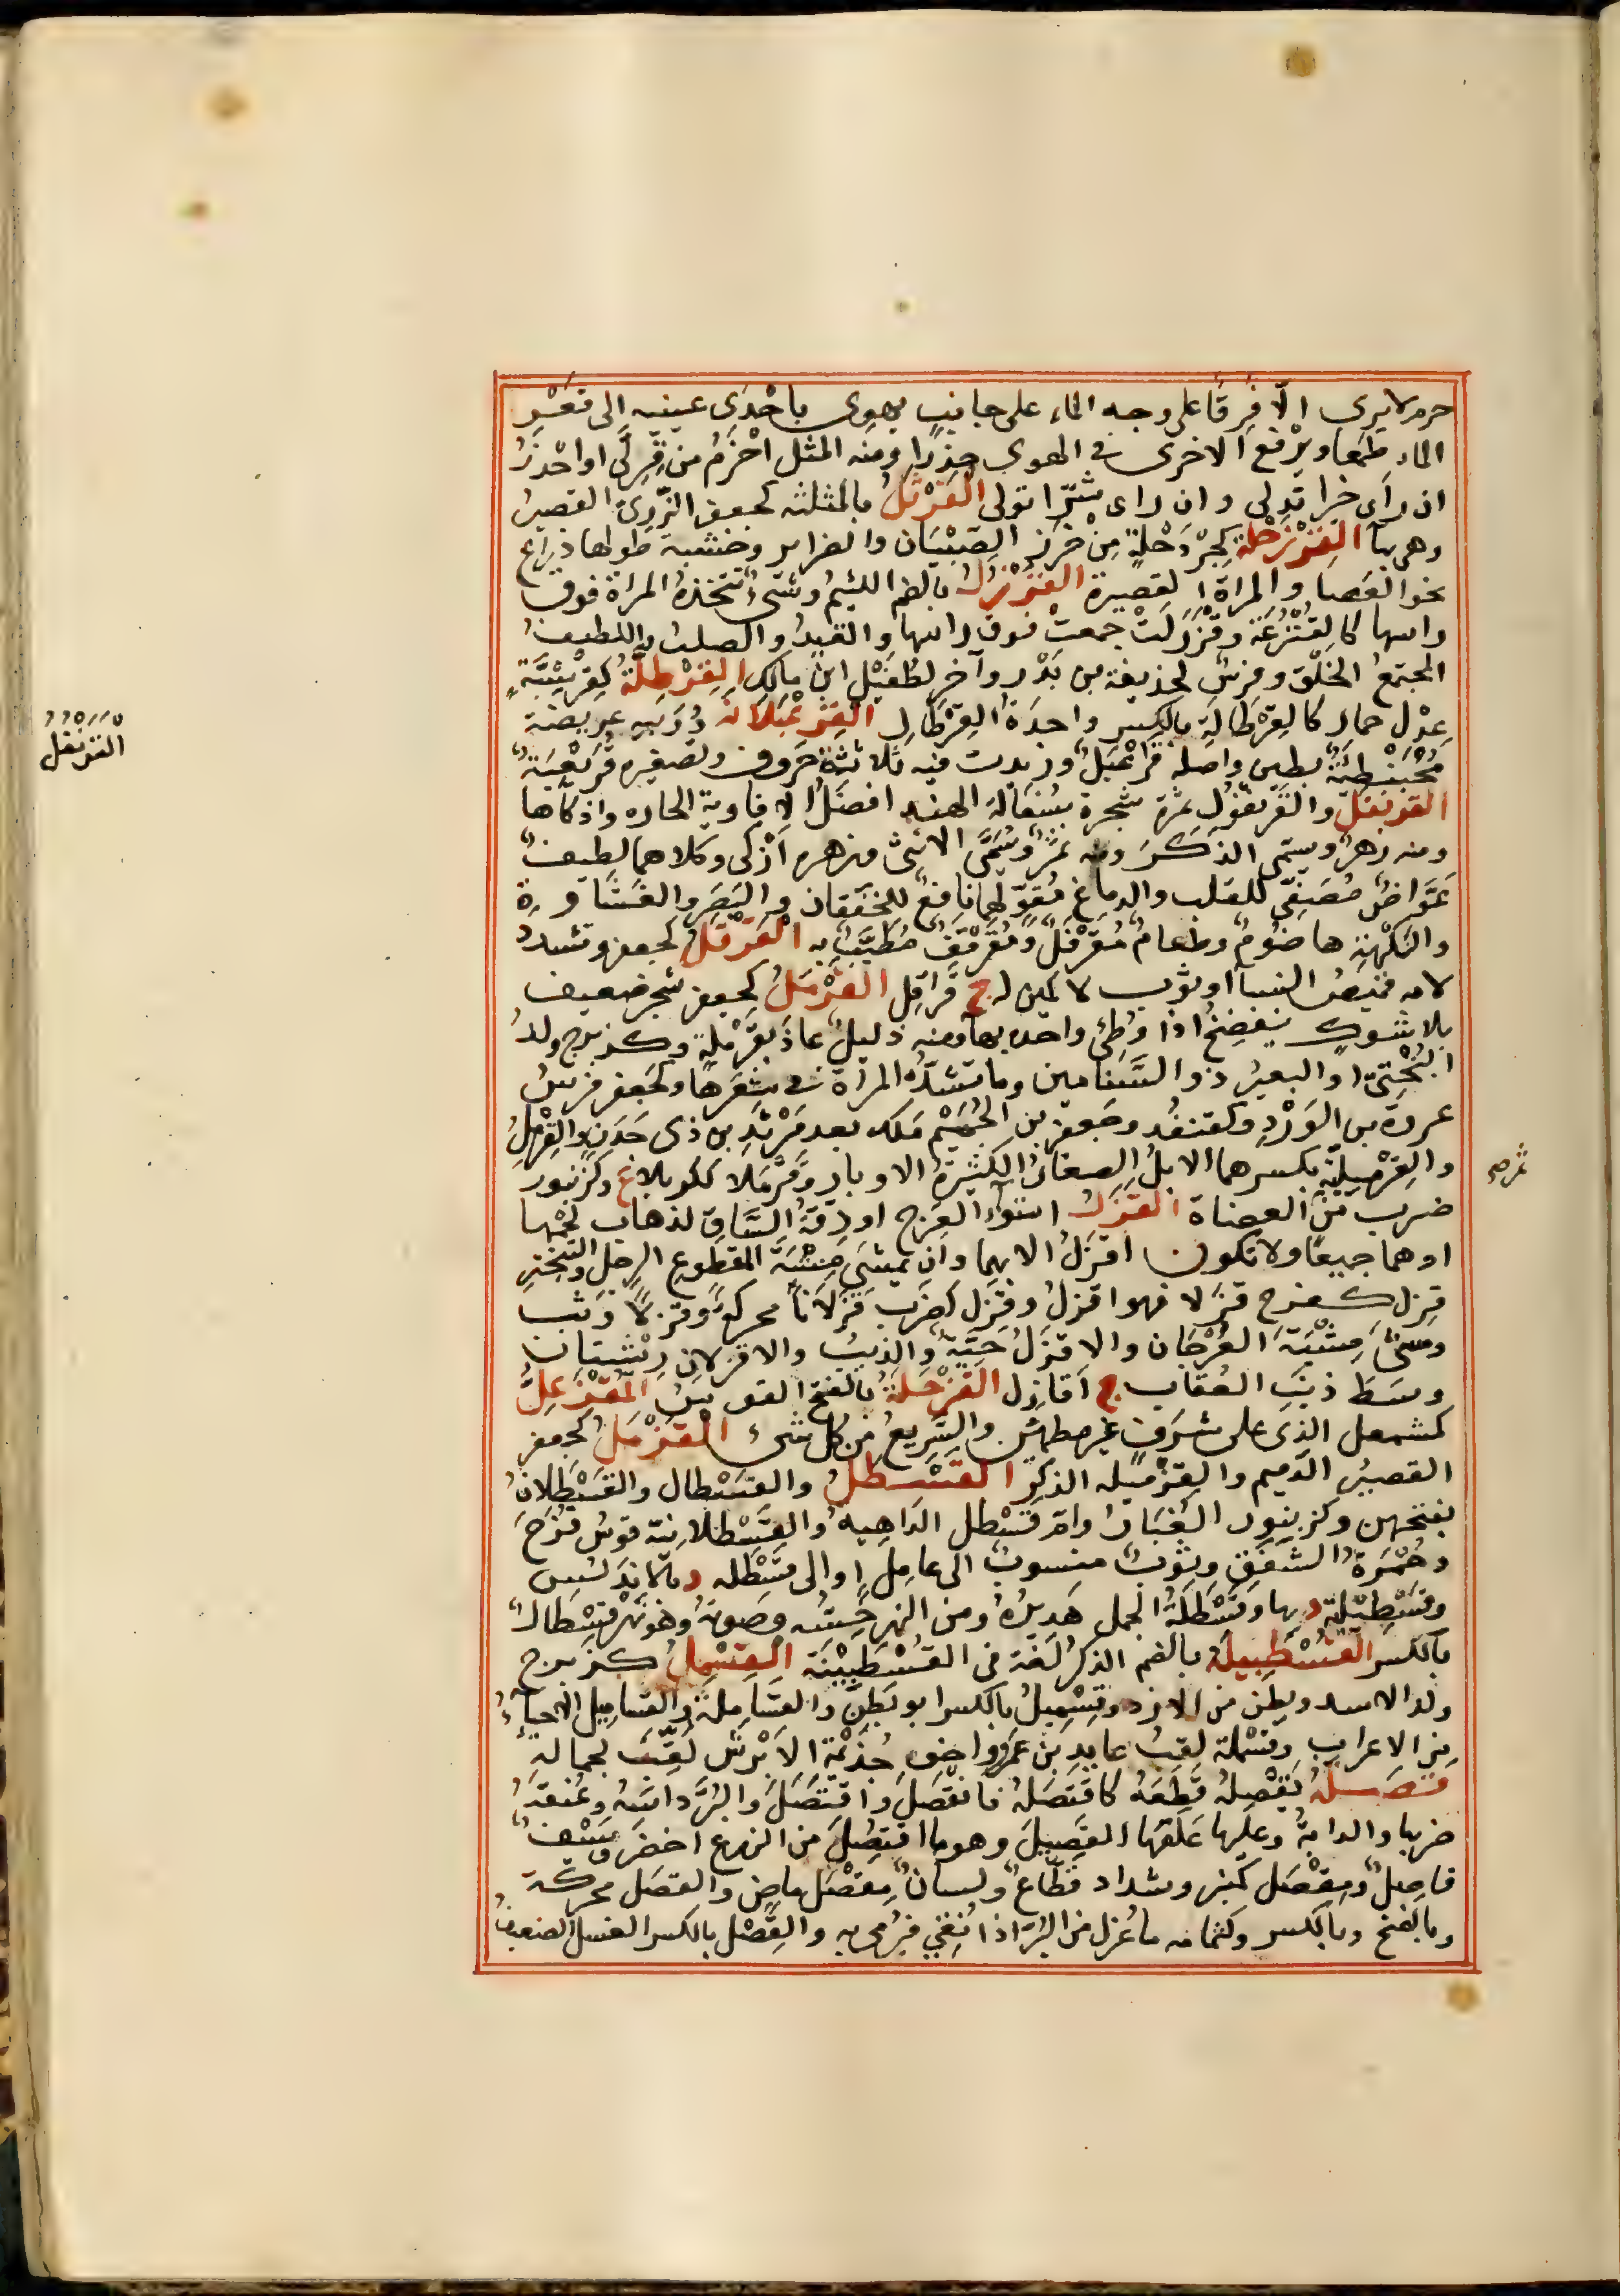 حزم لايرى الّا فِرِقًا على وجه الماء على جانب يهوى باحْدَى عينيه الى قَعْر
الماء طمَعا ويرْفع الاخرى فى الهوى حِذرًا ومنه المثل احْزَمُ من قِرِلَّى او احْذَرُ
ان رَاى خيرا تدلى وان راى شرّا تولى القَرْثَلُ بالمثلثه كجعفر الزّرىّ القصيرُ
وهى بهآ القِرْزَحْلة كجِرْدَحْلةٍ مِنْ خَرَزِ الصِبْيَان والضراير وخشبة طولها ذِراع
نحو العَصا والمراة القصيرة القُرْزُلُ بالضم اللئيم وشىءٌ تتخذهُ المراة فوق
راسها كالقُنْزُعَة وقَرْزَلَتْ جمعتْ فوق راسها والقيدُ والصلبُ واللطيفُ
المجتمعُ الخلْق وفرسٌ لحذيفة بن بَدْر وآخر لطُفَيْل ابن مالك القِرْطِلَّةُ كقِرْشِبَّةٍ
عِدْل حمار كالقِرْطَالَةِ بالكسر واحدَةُ القِرْطَالِ القَرَعْبَلَانَة دُوَيبه عريضة
مُحْبَنْطِئَةٌ بطين واصله قَرَعْبَلٌ وزيدت فيه ثلاثة حروف وتصغيره قُرَيْعِبَة
القرنفل والقَرَنْفُول ثمرة شجرة بسُفَالَة الهند افضَلُ الافاوية الحاره واذكاها
ومنه زهرٌ ويسمى الذَكَرَ ومنه ثمرٌ ويُسَمَّى الانثى وزهره اَذْكى وكلاهما لطيف
غَوَّاصٌ مُصَفِّى للقلب والدماغ مُقوٍّ لهما نافعٌ للخَفَقان والبَصَر والغَشَاوة
والنكْهة هاضُومٌ وطعامٌ مُقَرْفَلٌ ومُقَرْنَفٌ مُطَيَّبٌ به القَرْقَلُ كجعفر وتشدد
لامه قميصُ النسآ او ثوب لا كمين له ج قَراقِل القَرْمَلُ كجعفر شجر ضعيف
بلا شوكٍ ينفضخُ اذا وُطِئ واحده بهآ ومنه ذليلٌ عاذَ بقَرْمَلةٍ وكزبرج ولدُ
البُخْتىّ او البعيرُ ذو السَّنامين وما تشدّه المراة فى شعرها وكجعفر فرس
عروة بن الوَرْد وكقنفُد وجعفر بن الحُمَيْم ملك بعد مَرْثَد بن ذى جَدَن والقِرْمِلُ
والقِرْمِلِيَّة بكسرهما الابلُ الصغار الكثيرة الاوبار وقَرْمَلا ككربلاءَ ع وكزنبور
ضرب من العضاة القَزَلُ اسْوَأُ العَرَج او دِقّةُ السَّاقِ لذهاب لحْمِها
او هما جميعًا ولا تكون اقزَلُ الا بهما وان يمشىَ مِشْيَة المقطوع الرجل والتَبختر
قزِل كفرح قزَلا فهو اقزلُ وقزَل كضَرب قَزَلاناً محركة وقزلًا وثب
ومشى مِشْيَة العُرْجَان والاقزَلُ حَيَّةٌ والذيبُ والاقزلان ريشتان
وسَطَ ذنَبِ العُقاب ج اَقازِل القَزْحَلَةُ بالفتح القوسُ المُقْزَعِلُّ
كمشمعل الذى على شرفٍ غير مطمئن والسّريعُ من كل شىء القَزْمَلُ كجعفر
القصيرُ الدّميم والقزميله الذكر القَسْطلُ والقسْطال والقَسْطَلانُ
بفتحهن وكزنبور الغُبَارُ وامّ قَسْطل الداهيةُ والقَسْطلانية قوسُ قُزَحَ
وحُمْرةُ الشَفَقِ وثوبٌ منسوبٌ الى عامِلٍ او الى قَسْطله د بالاندلُس
وقَسْطِيلة د بها وقَسْطلَة الجمل هديرُهُ ومن النهر حِسّه وصَوتهُ وهو نهرٌ قِسْطالٌ
بالكسر القُسْطبيلة بالضم الذكرُ لغة فى القُسْطبِينَة القِسْمِلُ كزبرج
ولد الاسد وبطن من الازد وقِسْمِيلُ بالكسر ابو بَطنٍ والقَسَاملة والقساميل الاحيآءُ
من الاعراب وقَسْملة لقبُ عايد بن عَمْرو اخى جُذَيْمة الابْرَش لُقِّبَ لجماله
قصَلهُ يَقْصِلهُ قَطعَهُ كاقْتَصَلهُ فانْقصَلَ واقْتَصَلَ والبُرَّ داسَهُ وعُنقَهُ
ضربها والدابةَ وعليها عَلَفها القَصِيلَ وهو ما اقتُصِلَ من الزرع اخضَر وسَيْفٌ
قاصِلٌ ومِقْصَل كمنبر وشداد قطّاعٌ ولسانٌ مِقْصَلٌ ماضٍ والقصَل محركة
وبالفتح وبالكسر وكثمامه ما عُزل من البُرّ اذا نُقّى فيُرمى به والقِصْل بالكسر الفسل الضعيفُ
القرنفل